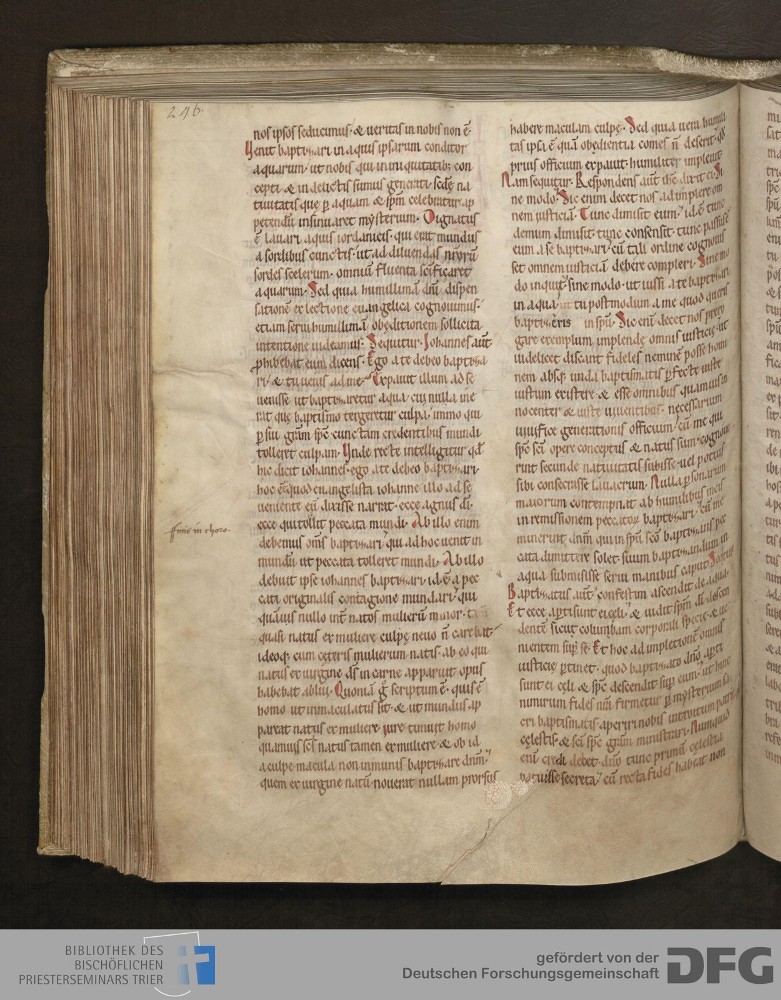 246.
nos ipsos seducimus· & ueritas in nobis non ē·
Venit baptizari in aquis ipsarum conditor
aquarum· ut nobis qui in iniquitatib; con
cepti & in delictis sumus generati· scđę na
tiuitatis quę p̱ aquam & sp̄m celebratur ap
petendū insinuaret mysterium· Dignatus
ē lauari aquis iordanicis· qui erat mundus
a sordibus cunctis· ut ad diluendas nrōrū
sordes scelerum· omniū fluenta scīficaret
aquarum· Sed quia humillimā dnī dispen
sationē ex lectione euangelica cognouimus·
etiam serui humillimā obęditionem sollicita
intentione uideamus· Sequitur· Iohannes aut̄
phibebat eum dicens· Ego a te debeo baptiza
ri· & tu uenis ad me· Expauit illum ad se
uenisse ut baptizaretur aqua· cui nulla ine
rat quę baptismo tergeretur culpa· immo qui
p suū grām sp̄c cunctam credentibus mundi
tolleret culpam· Unde recte intelligitur qđ
hic dicit iohannes· ego a te debeo baptizari·
hoc ēē quod euangelista iohanne illo ad se
ueniente eū dixisse narrat· ecce agnus dī·
ecce qui tollit peccata mundi· Ab illo enim
debemus om̄s baptizari· qui ad hoc uenit in
mundū ut peccata tolleret mundi· Ab illo
debuit ipse iohannes baptizari· id ē a pec
cati originalis contagione mundari· qui
quāuis nullo int̄ natos mulierū maior·
quasi natus ex muliere culpę neuo n̄ carebat·
ideoq; cum cęteris mulierum natis· ab eo qui
natus ex uirgine dś in carne apparuit opus
habebat ablui· Quoniā g̊ scriptum ē· quis ē
homo ut inmaculatus sit· & ut mundus ap
pareat natus ex muliere· iure timuit homo
quamuis scs̄ natus tamen ex muliere· & ob id
a culpę macula non inmunis baptizare dnm̄·
quem ex uirgine natū nouerat nullam prorsus
finis in choro·
habere maculam culpę· Sed quia uera humili
tas ipsa ē quā obędientia comes n̄ deserit· qđ
prius officium expauit humiliter impleuit
Nam sequitur· Respondens aut̄ ihc̄ dixit ei· Si
ne modo· Sic enim decet nos adimplere om
nem iusticiā· Tunc dimisit eum· id ē tunc
demum dimisit· tunc consensit· tunc passus
eum a se baptizari· cū tali ordine cognouis
set omnem iusticiā debere compleri· Sine mo
do inquit· sine modo· ut iussi a te baptizari
in aqua· ut tu postmodum a me quod queris
baptizeris in sp̄u· Sic enī decet nos
gere exemplum implendę omnis iusticię· ut
uidelicet discant fideles neminē posse homi
nem absq; unda baptismatis p̱fecte iuste
iustum existere· & esse omnibus quamuis in
nocenter & iuste uiuentibus· necessarium
uiuificę generationis officium· cū me qui
sp̄c scī opere conceptus & natus sum· cognoue
rint secundę natiuitatis subisse· uel potius
sibi consecrasse lauacrum· Nulla p̱sonarum
maiorum contempnat ab humilibus meis
in remissionem peccatorum baptizari· cū me
minerint dnm̄ qui in sp̄u scō baptizans pec
cata dimittere solet· suum baptizandum in
aqua submisisse serui manibus caput·
Baptizatus aut̄ confestim ascendit de aqua·
Et ecce ap̱tisunt ei cęli· & uidit sp̄m dī descen
dentē sicut columbam corporali specie· & ue
nientem sup̱ se· Et hoc ad impletionē omnis
iusticię p̱tinet· quod baptizato dnō ap̱ti
sunt ei cęli· & sp̄c descendit sup̱ eum· ut hinc
numirum fides nrā firmetur p̱ mysterium sa
cri baptismatis aperiri nobis introitum patrię
cęlestis· & scī sp̄c grām ministrari· Numquid
enī credi debet· dnō tunc primū cęlestia
patuisse secreta· cū recta fides habeat non
BIBLIOTHEK DES
BISCHÖFLICHEN
PRIESTERSEMINARS TRIER
gefördert von der
Deutschen Forschungsgemeinschaft
DFG